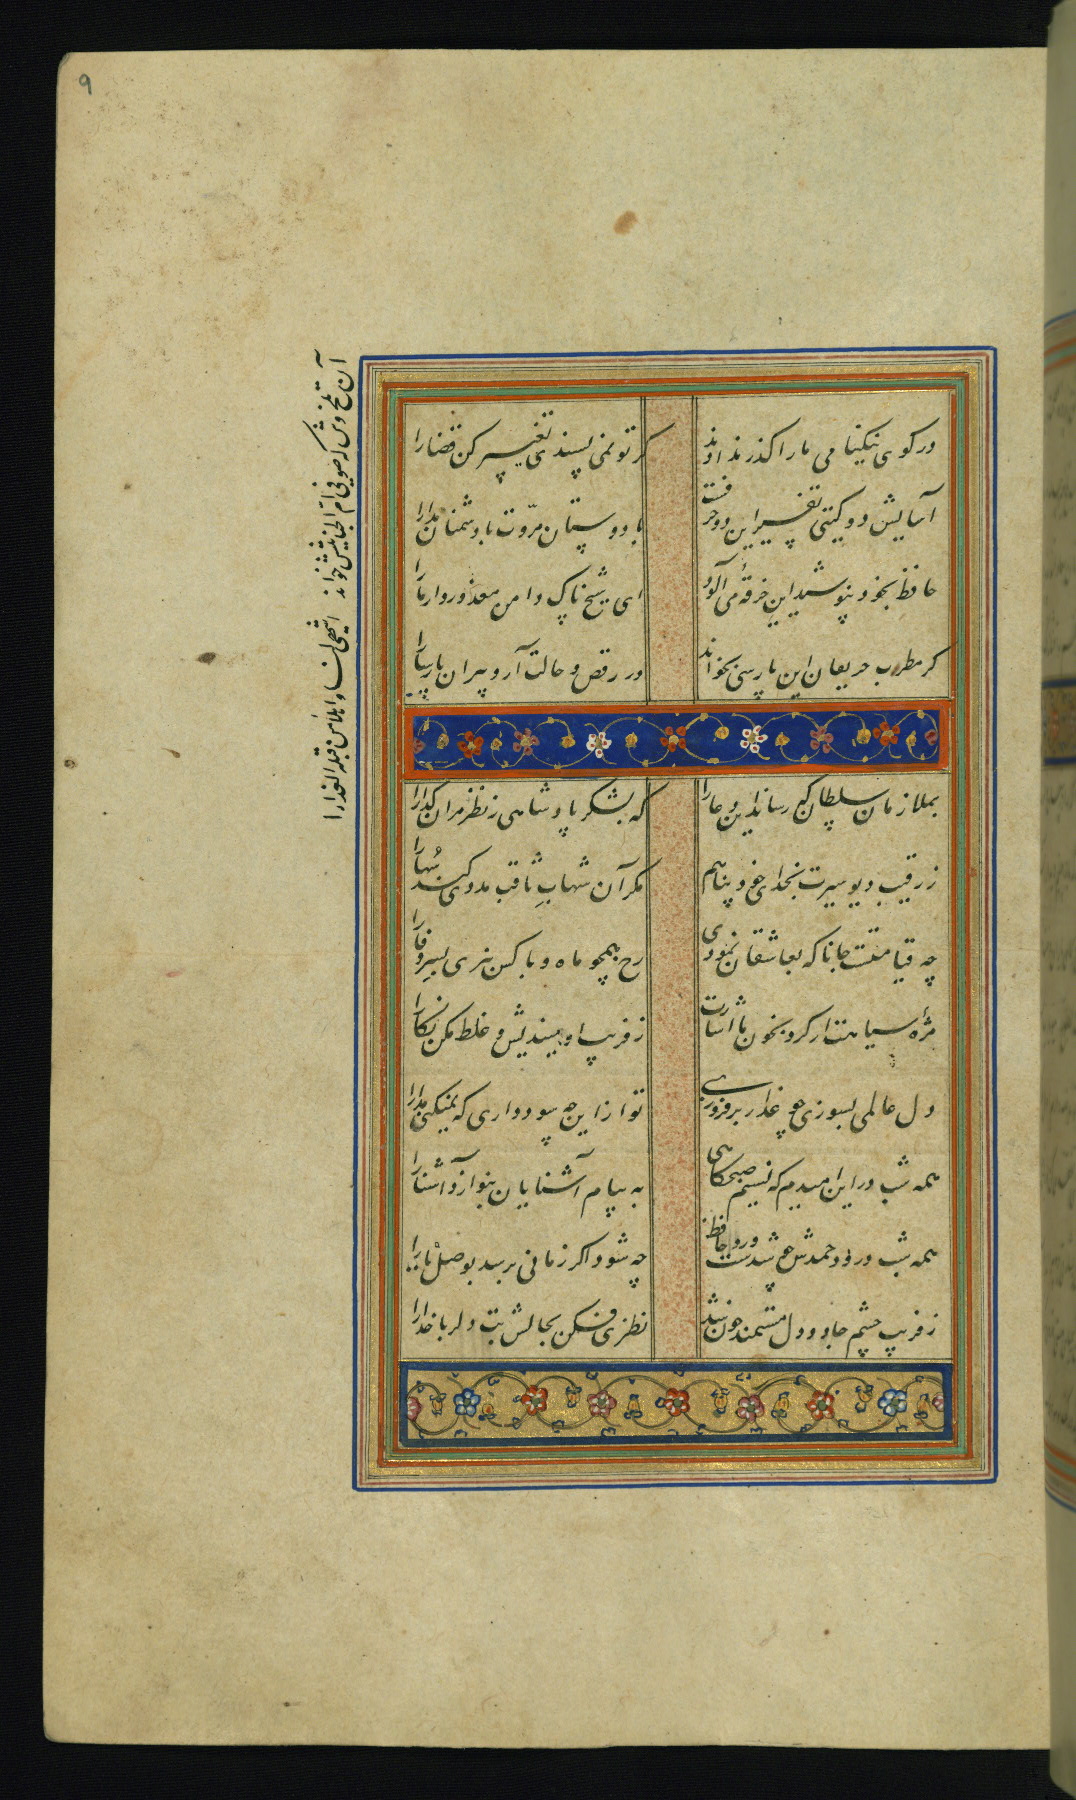 ۹
در کوی نیکنامی ما را گذر ندادند
گر تو نمی پسندی تغییر کن قضا را
آسایش دو گیتی تفسیر این دو حرفست
با دوستان مروّت با دشمنان مدارا
حافظ بخود نپوشید این خرقهٔ می آلود
ای شیخ پاک دامن معذور دار ما را
گر مطرب حریفان این پارسی بخواند
در رقص و حالت آرد پیران پارسا را
بملازمان سلطان که رساند این دعا را
که بشکر پادشاهی ز نظر مران گدا را
ز رقیب دیو سیرت بخدای خود پناهم
مگر آن شهابِ ثاقب مددی کند سُها را
چه قیامتست جانا که بعاشقان نمودی
رخ همچو ماه تابان
مژهٔ سیاهت ار کرد بخون ما اشارت
ز فریب او بیندیش و غلط مکن نگارا
دل عالمی بسوزی چو عذار برفروزی
تو از این چه سود داری که نمیکنی مدارا
همه شب در این امیدم که نسیم صبحگاهی
به پیام آشنایان بنوازد آشنا را
همه شب
چه شود اگر زمانی برسد بوصل یارا
ز فریب چشم جادو دل مستمند خون شد
نظری فکن بحالش بت دلربا خدا را
آن تلخ وش که صوفی ام الخبائثش خواند
اشهی لنا و احلی من قبلة العذارا